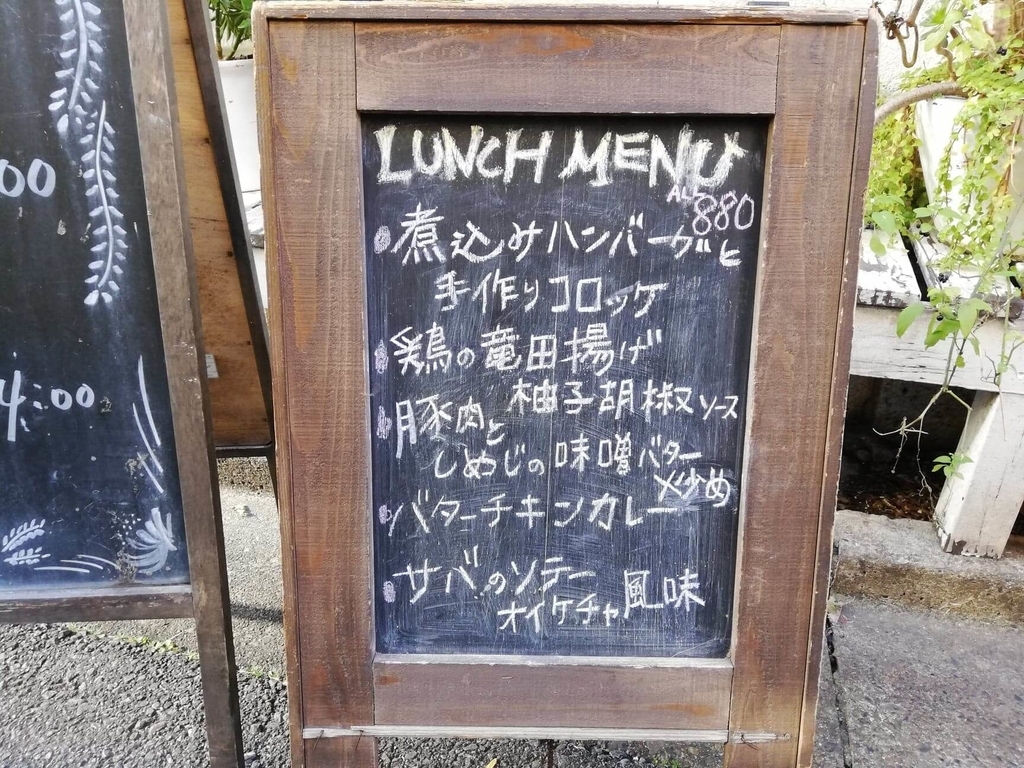 00
4:00
LUNCH MENU
ALL 880
煮込みハンバーグと
手作りコロッケ
鶏の竜田揚げ
柚子胡椒ソース
豚肉と
しめじの味噌バター
炒め
バターチキンカレー
サバのソテー
オイケチャ風味